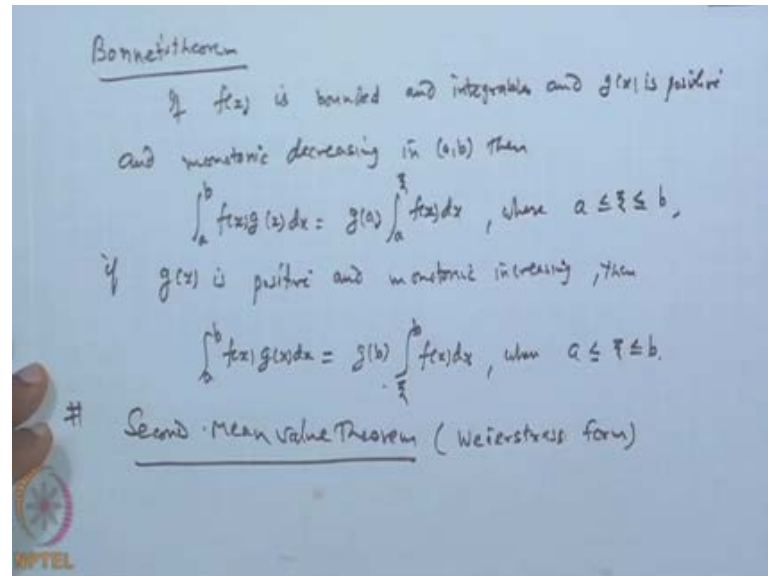 Bonnet's theorem
If f(x) is bounded and integrable and g(x) is positive
and monotonic decreasing in (a,b) then
∫_a^b f(x)g(x)dx = g(a) ∫_a^ξ f(x)dx, where a ≤ ξ ≤ b,
if g(x) is positive and monotonic increasing, then
∫_a^b f(x)g(x)dx = g(b) ∫_ξ^b f(x)dx, when a ≤ ξ ≤ b.
# Second Mean Value Theorem (Weierstrass form)
NPTEL